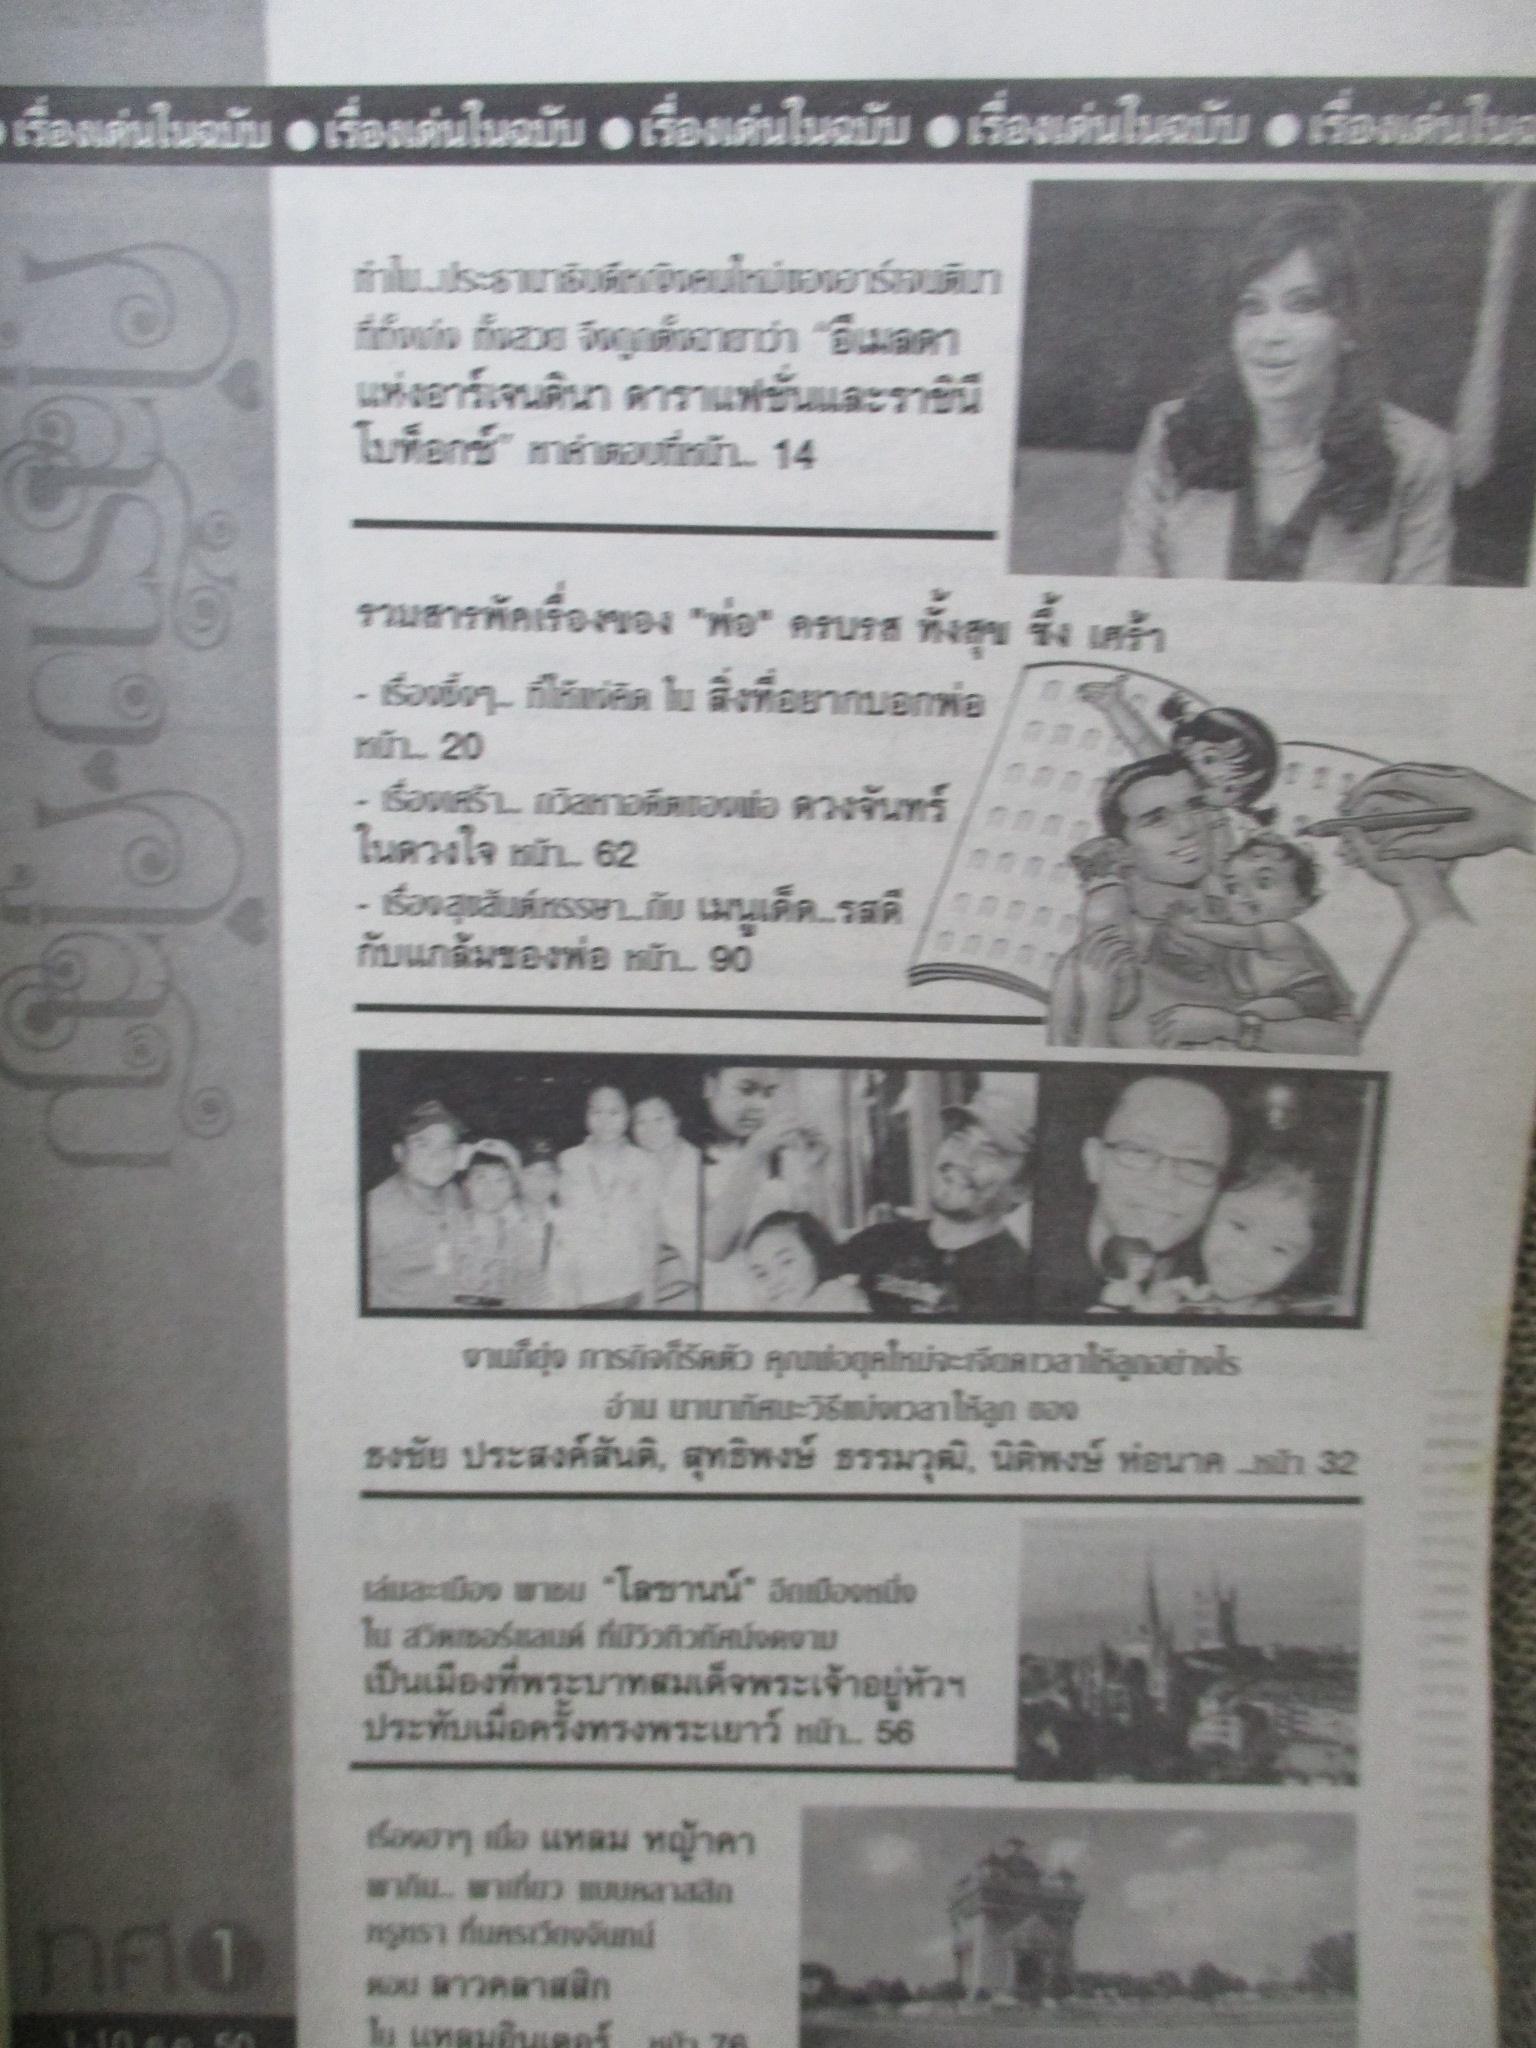 เรื่องเด่นในฉบับ ● เรื่องเด่นในฉบับ ● เรื่องเด่นในฉบับ ● เรื่องเด่นในฉบับ ● เรื่องเด่นใน
คู่สร้าง
คู่สม
ทำไม...ประธานาธิบดีหญิงคนใหม่ของอาร์เจนตินา
ที่ทั้งเก่ง ทั้งสวย จึงถูกตั้งฉายาว่า "อีเมลดา
แห่งอาร์เจนตินา ดาราแฟชั่นและราชินี
โบท็อกซ์" หาคำตอบที่หน้า... 14
รวมสารพัดเรื่องของ "พ่อ" ครบรส ทั้งสุข ซึ้ง เศร้า
- เรื่องซึ้งๆ... ที่ให้แง่คิด ใน สิ่งที่อยากบอกพ่อ
หน้า... 20
- เรื่องเศร้า... ถวิลหาอดีตของพ่อ ดวงจันทร์
ในดวงใจ หน้า... 62
- เรื่องสุขสันต์หรรษา...กับ เมนูเด็ด...รสดี
กับแกล้มของพ่อ หน้า... 90
งานก็ยุ่ง ภารกิจก็รัดตัว คุณพ่อยุคใหม่จะเจียดเวลาให้ลูกอย่างไร
อ่าน นานาทัศนะวิธีแบ่งเวลาให้ลูก ของ
ธงชัย ประสงค์สันติ, สุทธิพงษ์ ธรรมวุฒิ, นิติพงษ์ ห่อนาค ...หน้า 32
เล่มละเมือง พาชม "โลซานน์" อีกเมืองหนึ่ง
ใน สวิตเซอร์แลนด์ ที่มีวิวทิวทัศน์งดงาม
เป็นเมืองที่พระบาทสมเด็จพระเจ้าอยู่หัวฯ
ประทับเมื่อครั้งทรงพระเยาว์ หน้า... 56
เรื่องฮาๆ เมื่อ แหลม หญ้าคา
พากิน... พาเที่ยว แบบคลาสสิก
หรูหรา ที่นครเวียงจันทน์
ตอน ลาวคลาสสิก
ใน แหลมอินเตอร์ ...หน้า 76
ทศ 1
1-10 ธ.ค. 50